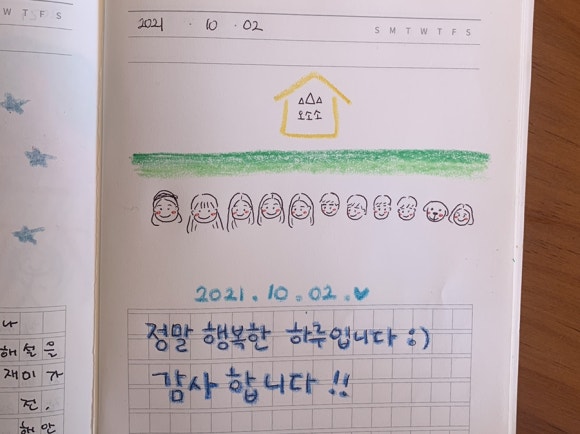 W T F S
2021 . 10 . 02
S M T W T F S
오소소
2021. 10. 02. ♥
정말 행복한 하루입니다 :)
감사합니다 !!
나
해설을
재미가
전.
해안